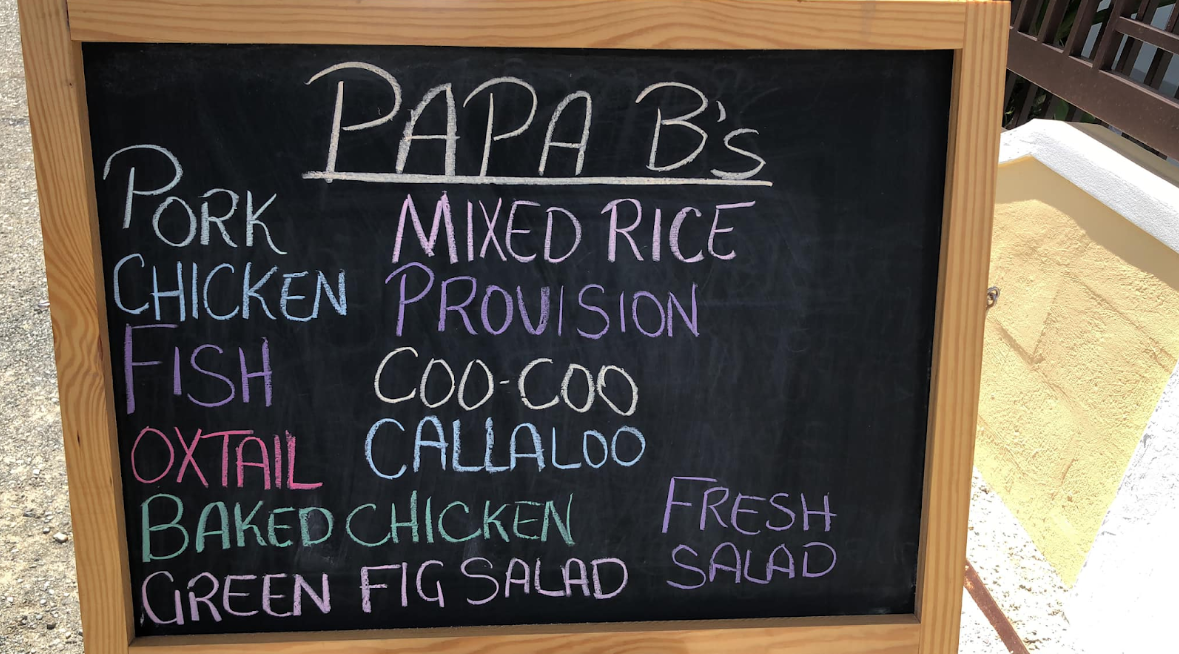 PAPA B's
PORK MIXED RICE
CHICKEN PROVISION
FISH COO-COO
OXTAIL CALLALOO
BAKED CHICKEN FRESH
GREEN FIG SALAD SALAD